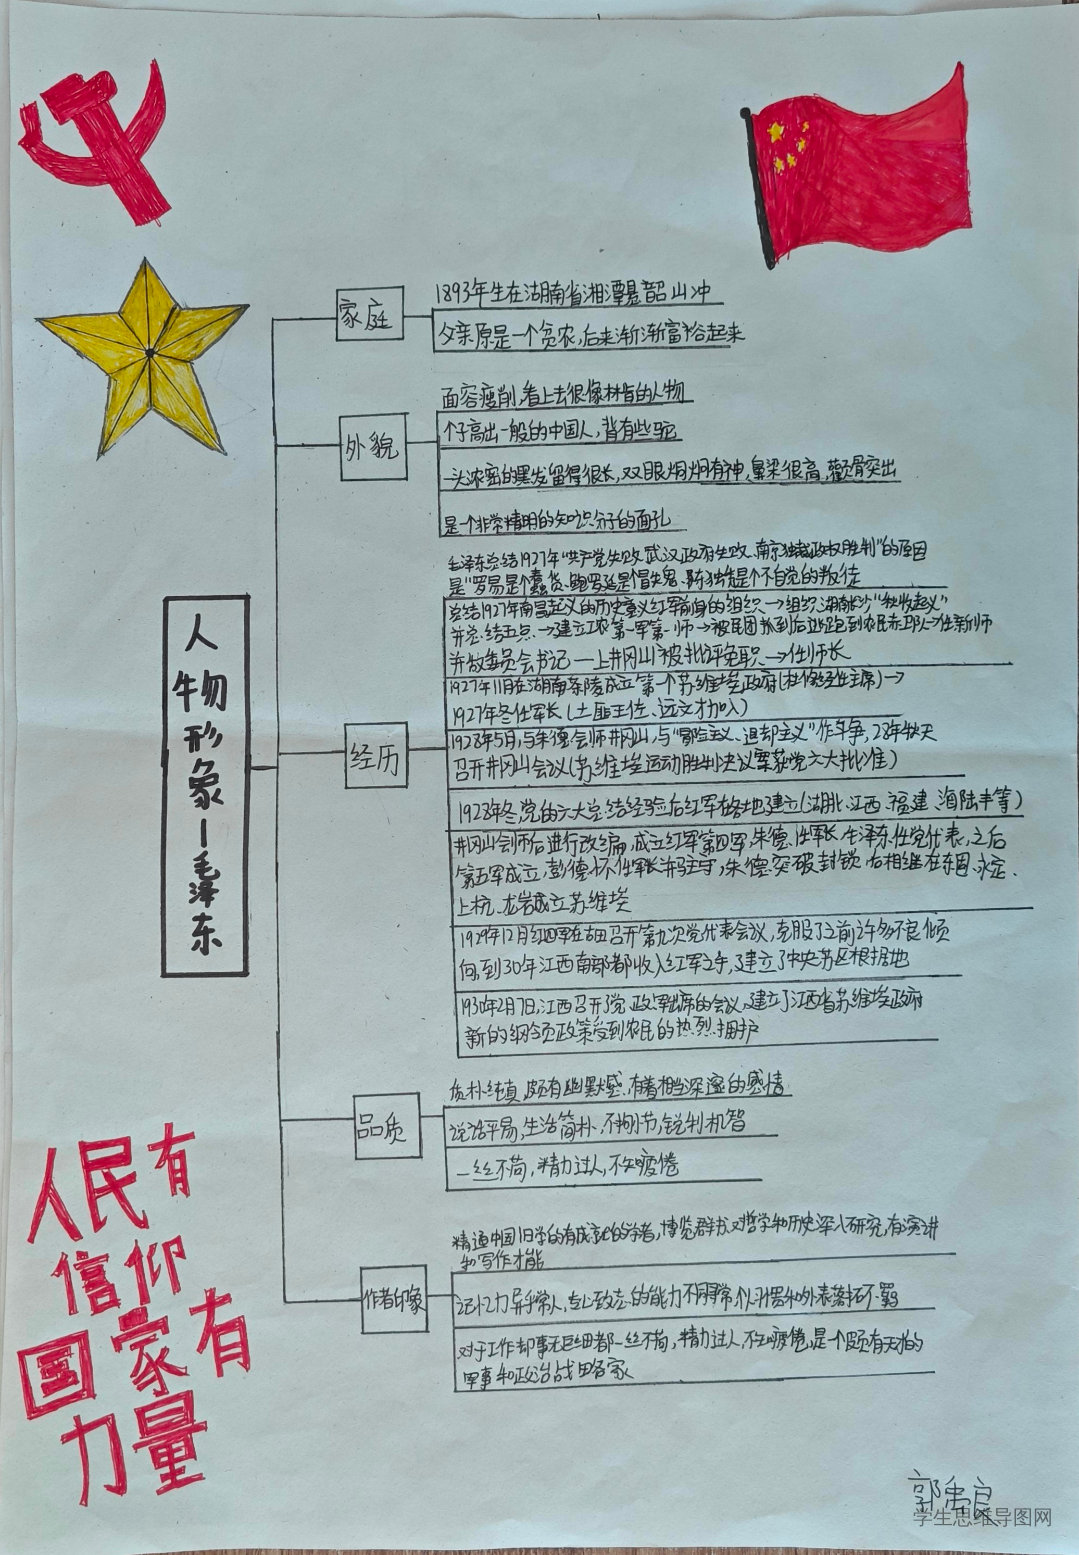 家庭
1893年生在湖南省湘潭县韶山冲
父亲原是一个贫农,后来渐渐富裕起来
外貌
面容瘦削,看上去很像林肯的人物
个子高出一般的中国人,背有些驼
一头浓密的黑发留得很长,双眼炯炯有神,鼻梁很高,颧骨突出
是一个非常精明的知识分子的面孔
人物形象—毛泽东
经历
毛泽东总结1927年“共产党失败、武汉政府失败、南京独裁政权胜利”的原因
是“罗易是个蠢货、鲍罗廷是个冒失鬼、陈独秀是个不自觉的叛徒
总结1927年南昌起义的历史意义红军前身的组织→组织湖南长沙“秋收起义”
并总结五点→建立工农第一军第一师→被民团抓到后逃跑到农民在部队→任新师
并做委员会书记—上井冈山“被批评免职→任师长
1927年11月在湖南茶陵成立第一个苏维埃政府(杜修经任主席)→
1927年冬任军长(土匪王佐、远文才加入)
1928年5月,与朱德会师井冈山,与“冒险主义、退却主义”作斗争,28年秋天
召开井冈山会议(苏维埃运动胜利决议案获党六大批准)
1928年冬,党的六大总结经验后红军在各地建立(湖北、江西、福建、海陆丰等)
井冈山会师后进行改编,成立红军第四军,朱德任军长,毛泽东任党代表,之后
第五军成立,彭德怀任军长并驻守,朱德突破封锁后相继在东固、永定、
上杭、龙岩成立苏维埃
1929年12月红四军在古田召开第九次党代表会议,克服了之前许多不良倾
向,到30年江西南部都收入红军之手,建立了中央苏区根据地
1930年2月7日,江西召开党、政、军出席的会议,建立了江西省苏维埃政府
新的纲领政策受到农民的热烈拥护
品质
质朴纯真,颇有幽默感,有着相当深邃的感情
说话平易,生活简朴,不拘小节,锐利机智
一丝不苟,精力过人,不知疲倦
作者印象
精通中国旧学的有成就的学者,博览群书,对哲学和历史深入研究,有演讲
和写作才能
记忆力异乎常人,专心致志的能力不同寻常,个人习惯和外表落拓不羁
对于工作却事无巨细都一丝不苟,精力过人,不知疲倦,是一个颇有天才的
军事和政治战略家
人民有
信仰
国家有
力量
郭禹良
学生思维导图网